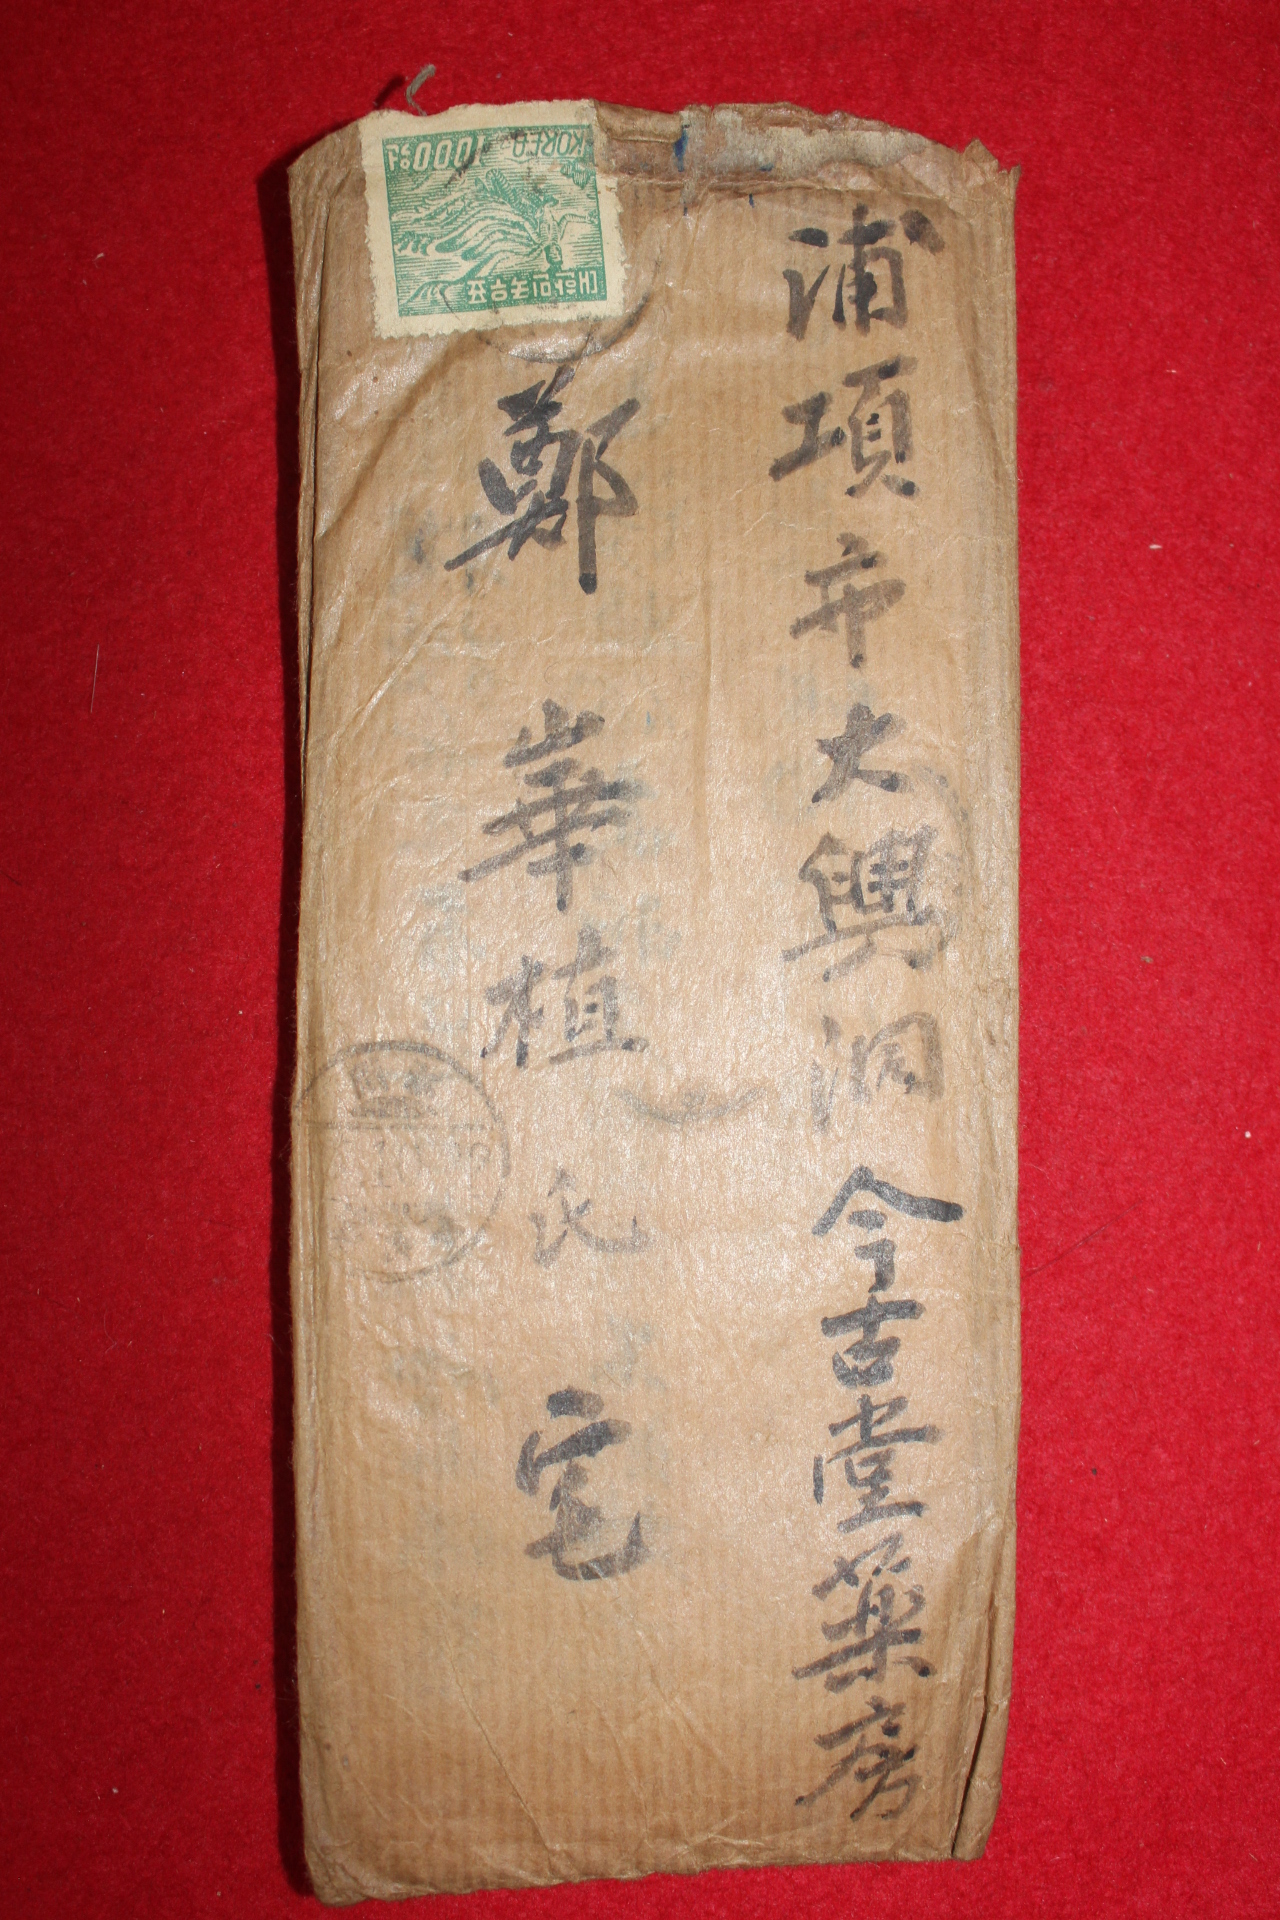 浦項市大興洞今古堂藥房
鄭崋植氏 宅
KOREA 1000원
대한민국우표